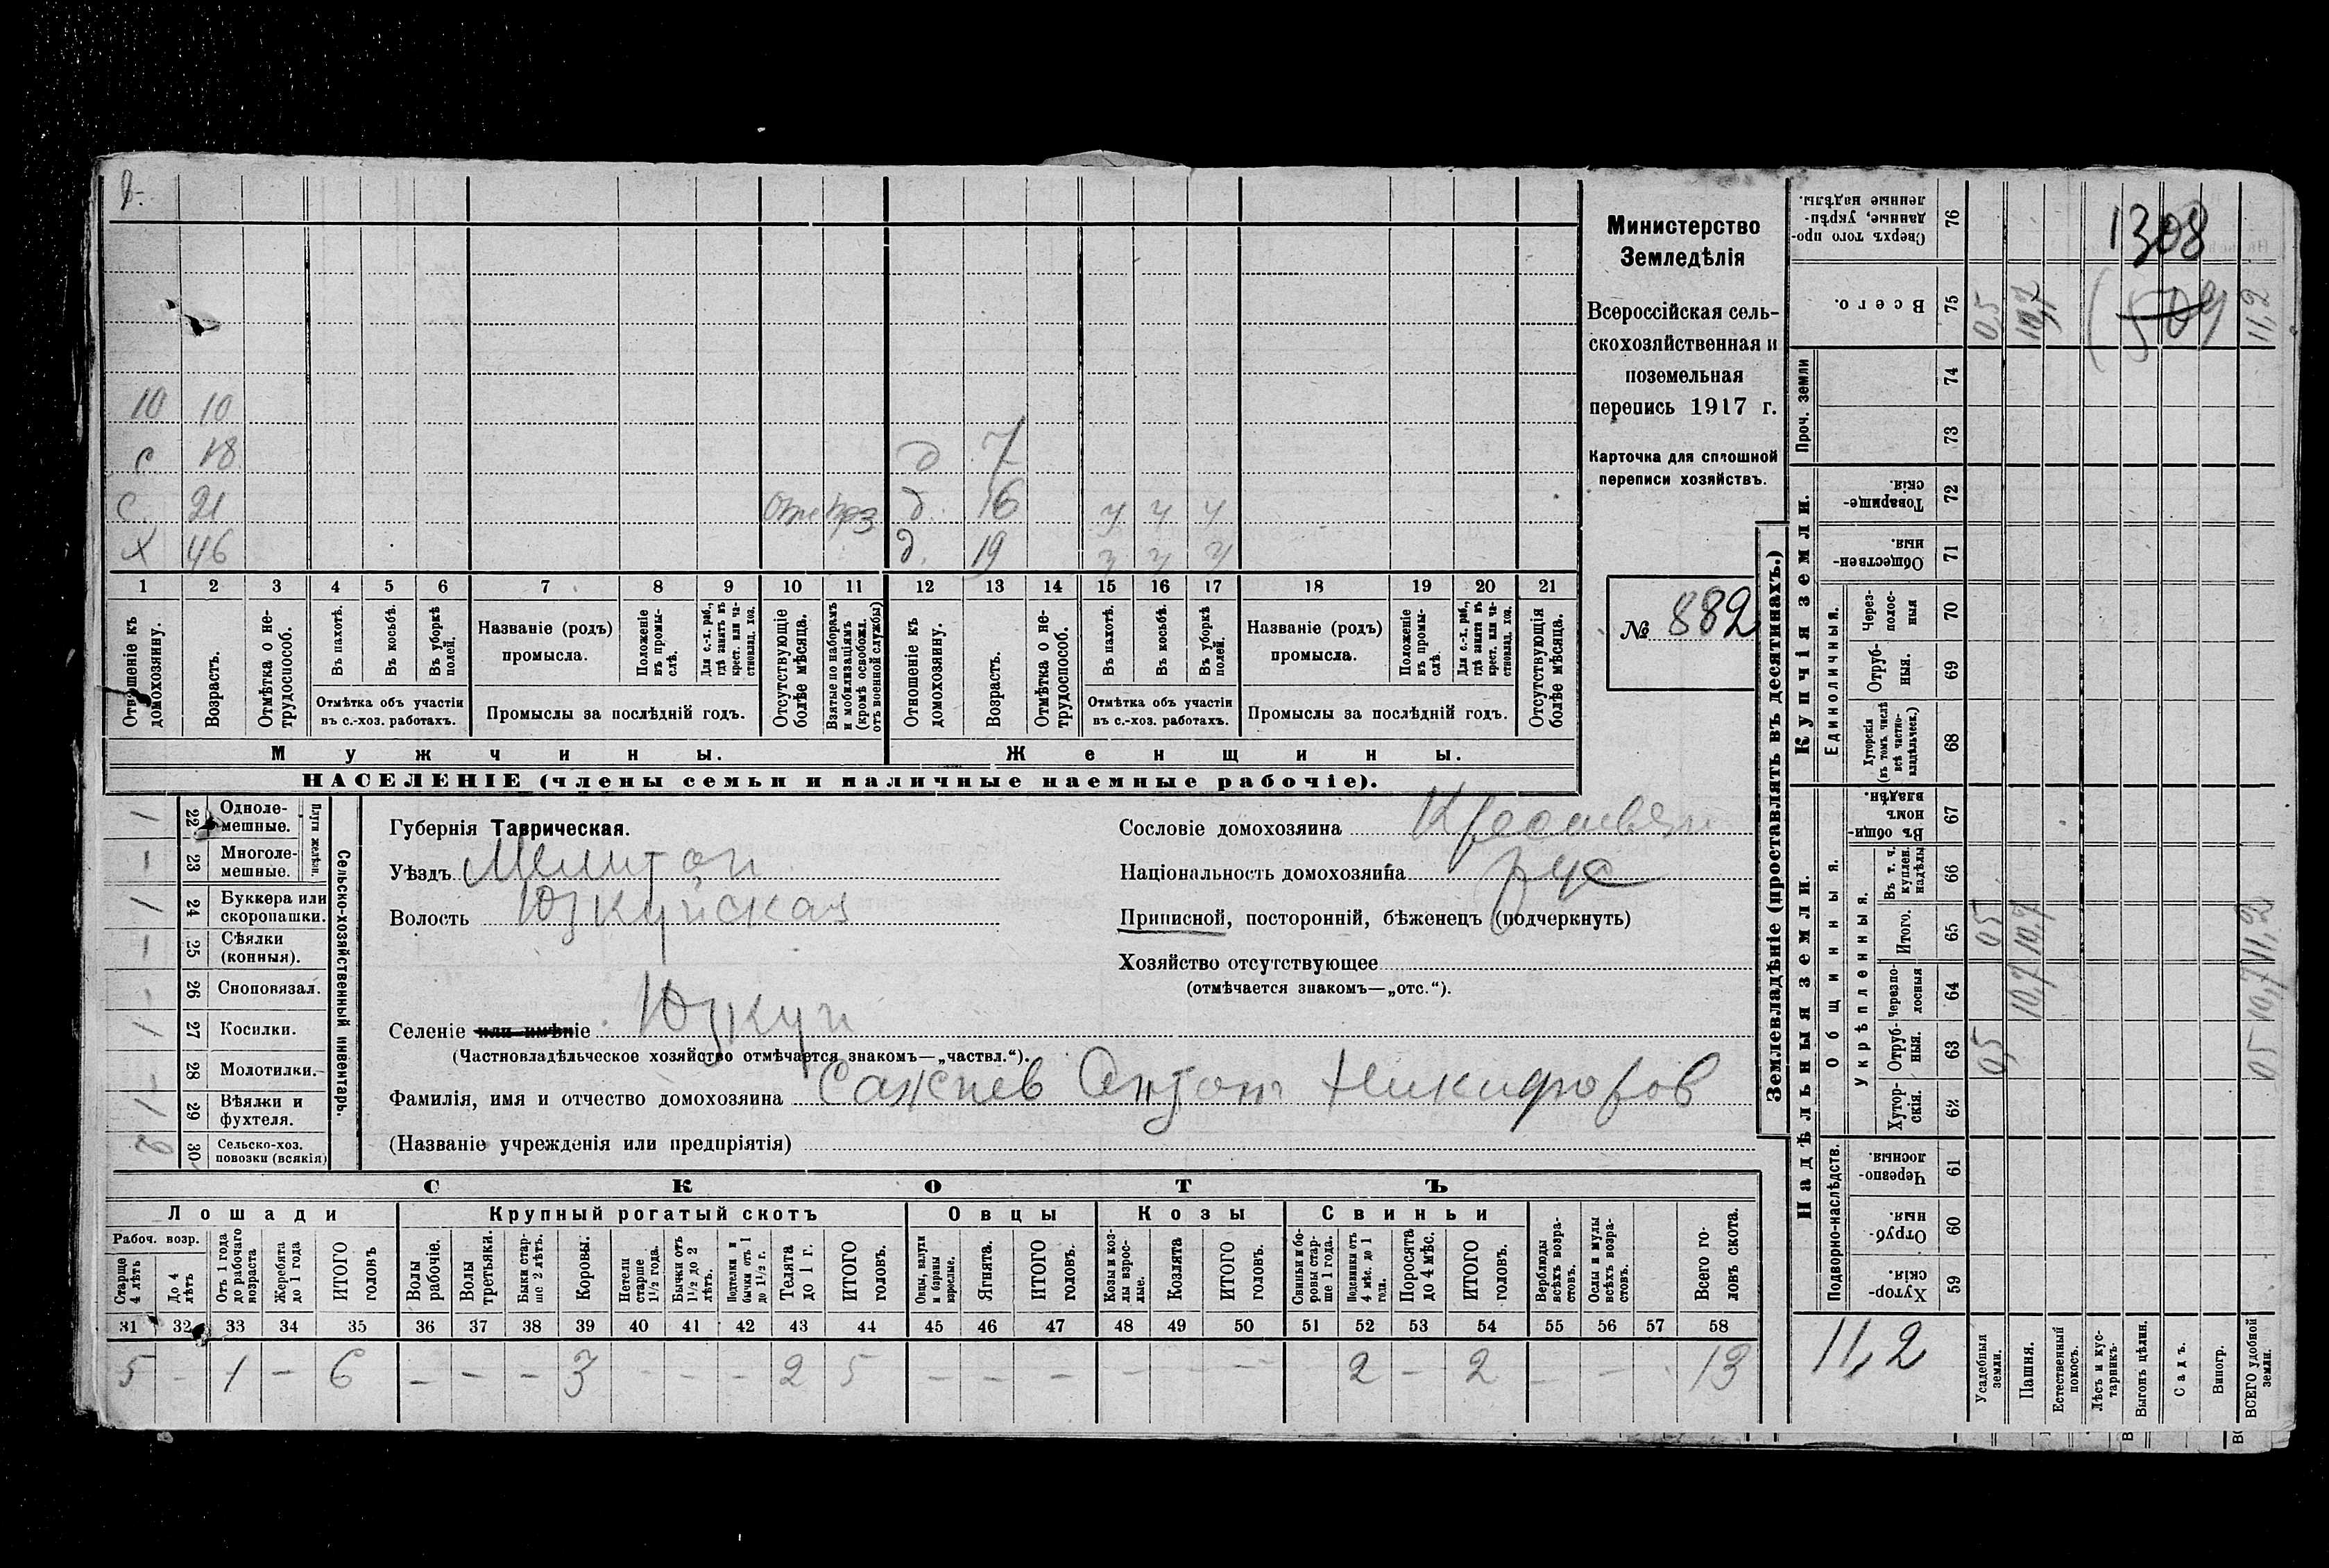 Министерство
Земледѣлія
Всероссійская сель-
скохозяйственная и
поземельная
перепись 1917 г.
Карточка для сплошной
переписи хозяйствъ.
№ 882
10 10
с 18 д 7
с 21 д. 16 у у у
Х 46 д. 19 у у у
1 2 3 4 5 6 7 8 9 10 11 12 13 14 15 16 17 18 19 20 21
Отношеніе къ домохозяину.
Возрастъ.
Отмѣтка о не-трудоспособ.
Въ пахотѣ.
Въ косьбѣ.
Въ уборкѣ полей.
Отмѣтка объ участіи
въ с.-хоз. работахъ.
Названіе (родъ)
промысла.
Положеніе въ промы-слѣ.
Для с.-х. раб., гдѣ занятъ въ крест. или ча-стновлад. хоз.
Промыслы за послѣдній годъ.
Отсутствующіе болѣе мѣсяца.
Взятые по наборамъ и мобилизаціямъ (кромѣ освобожд. отъ военной службы)
Отношеніе къ домохозяину.
Возрастъ.
Отмѣтка о не-трудоспособ.
Въ пахотѣ.
Въ косьбѣ.
Въ уборкѣ полей.
Отмѣтка объ участіи
въ с.-хоз. работахъ.
Названіе (родъ)
промысла.
Положеніе въ промы-слѣ.
Для с.-х. раб., гдѣ занята въ крест. или ча-стновлад. хоз.
Промыслы за послѣдній годъ.
Отсутствующія болѣе мѣсяца.
Мужчины. Женщины.
НАСЕЛЕНІЕ (члены семьи и наличные наемные рабочіе).
Сельско-хозяйственный инвентарь.
Плуги желѣзн.
1 22 Одноле-мешные.
– 23 Многоле-мешные.
1 24 Буккера или скоропашки.
– 25 Сѣялки (конныя).
– 26 Сноповязал.
1 27 Косилки.
– 28 Молотилки.
1 29 Вѣялки и фухтеля.
30 Сельско-хоз. повозки (всякія)
Губернія Таврическая.
Уѣздъ Мелитоп
Волость Юзкуйская
Селеніе или имѣніе Юзкуи
(Частновладѣльческое хозяйство отмѣчается знакомъ—„частвл.“).
Фамилія, имя и отчество домохозяина Сажнев Антон Никифоров
(Названіе учрежденія или предпріятія)
Сословіе домохозяина Крестьян
Національность домохозяина рус
Приписной, посторонній, бѣженецъ (подчеркнуть)
Хозяйство отсутствующее
(отмѣчается знакомъ—„отс.“).
СКОТЪ
Лошади Крупный рогатый скотъ Овцы Козы Свиньи
Рабоч. возр.
Старше 4 лѣтъ
До 4 лѣтъ
Отъ 1 года до рабочаго возраста
Жеребята до 1 года
ИТОГО головъ
Волы рабочіе.
Волы третьяки.
Быки стар-ше 2 лѣтъ.
Коровы.
Нетели старше 1½ года.
Бычки отъ 1½ до 2 лѣтъ.
Подтелки и бычки отъ 1 до 1½ г.
Телята до 1 г.
ИТОГО головъ.
Овцы, валухи и бараны взрослые.
Ягнята.
ИТОГО головъ.
Козы и коз-лы взрос-лые.
Козлята
ИТОГО головъ.
Свиньи и бо-ровы стар-ше 1 года.
Подсвинки отъ 4 мѣс. до 1 года.
Поросята до 4 мѣс.
ИТОГО головъ.
Верблюды всѣхъ возра-стовъ.
Ослы и мулы всѣхъ возра-стовъ.
Всего го-ловъ скота.
31 32 33 34 35 36 37 38 39 40 41 42 43 44 45 46 47 48 49 50 51 52 53 54 55 56 57 58
5 – 1 – 6 – – – 3 – – – 2 5 – – – – – – 2 – 2 – – – 13
Землевладѣніе (проставлять въ десятинахъ.)
1308
(509
Сверхъ того про-данные, укрѣп-ленные надѣлы. 76
Всего. 75 0,5 10,7 11,2
Проч. земли
74
73
Купчія земли.
Товарище-скія. 72
Обществен-ныя. 71
Единоличныя.
Через-полос-ныя 70
Отруб-ныя. 69
Хуторскія (въ томъ числѣ всѣ частно-владѣльческ.) 68
Надѣльныя земли.
Общинныя.
Въ общин-номъ владѣн. 67
Укрѣпленныя.
Въ т. ч. куплен. надѣлы 66
Итого. 65 0,5 10,7 11,2
Черезпо-лосныя 64 10,7 10,7
Отруб-ныя. 63 0,5 05
Хутор-скія. 62
Подворно-наслѣдств.
Черезпо-лосныя. 61
Отруб-ныя. 60
Хутор-скія. 59
11,2
Усадебныя земли.
Пашня.
Естественный покосъ.
Лѣсъ и кус-тарникъ.
Выгонъ цѣлин.
Садъ.
Виногр.
ВСЕГО удобной земли.